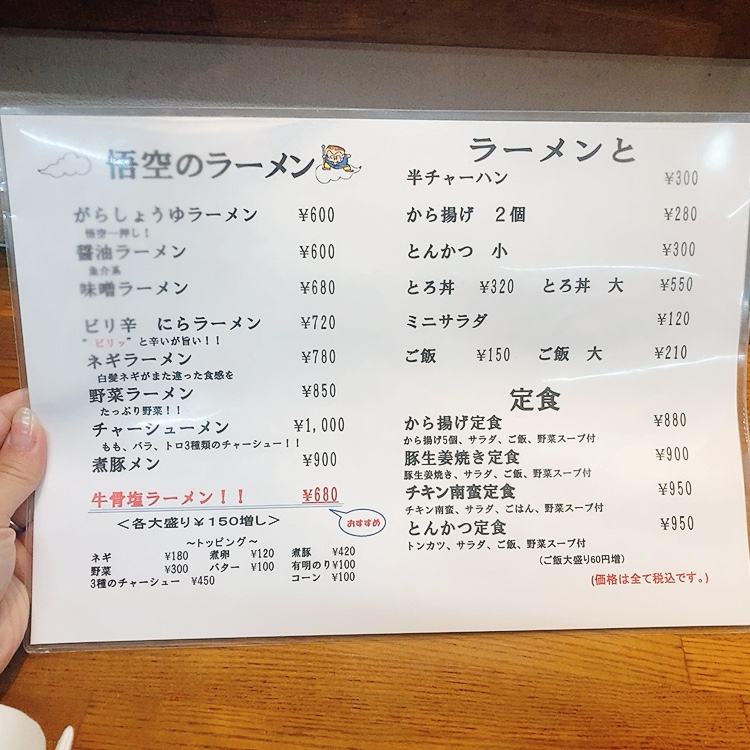 悟空のラーメン
がらしょうゆラーメン ¥600
悟空一押し!
醤油ラーメン ¥600
魚介系
味噌ラーメン ¥680
ピリ辛 にらラーメン ¥720
"ピリッ"と辛いが旨い!!
ネギラーメン ¥780
白髪ネギがまた違った食感を
野菜ラーメン ¥850
たっぷり野菜!!
チャーシューメン ¥1,000
もも、バラ、トロ3種類のチャーシュー!!
煮豚メン ¥900
牛骨塩ラーメン!! ¥680
おすすめ
<各大盛り¥150増し>
~トッピング~
ネギ ¥180 煮卵 ¥120 煮豚 ¥420
野菜 ¥300 バター ¥100 有明のり¥100
3種のチャーシュー ¥450 コーン ¥100
ラーメンと
半チャーハン ¥300
から揚げ 2個 ¥280
とんかつ 小 ¥300
とろ丼 ¥320 とろ丼 大 ¥550
ミニサラダ ¥120
ご飯 ¥150 ご飯 大 ¥210
定食
から揚げ定食 ¥880
から揚げ5個、サラダ、ご飯、野菜スープ付
豚生姜焼き定食 ¥900
豚生姜焼き、サラダ、ご飯、野菜スープ付
チキン南蛮定食 ¥950
チキン南蛮、サラダ、ごはん、野菜スープ付
とんかつ定食 ¥950
トンカツ、サラダ、ご飯、野菜スープ付
(ご飯大盛り60円増)
(価格は全て税込です。)